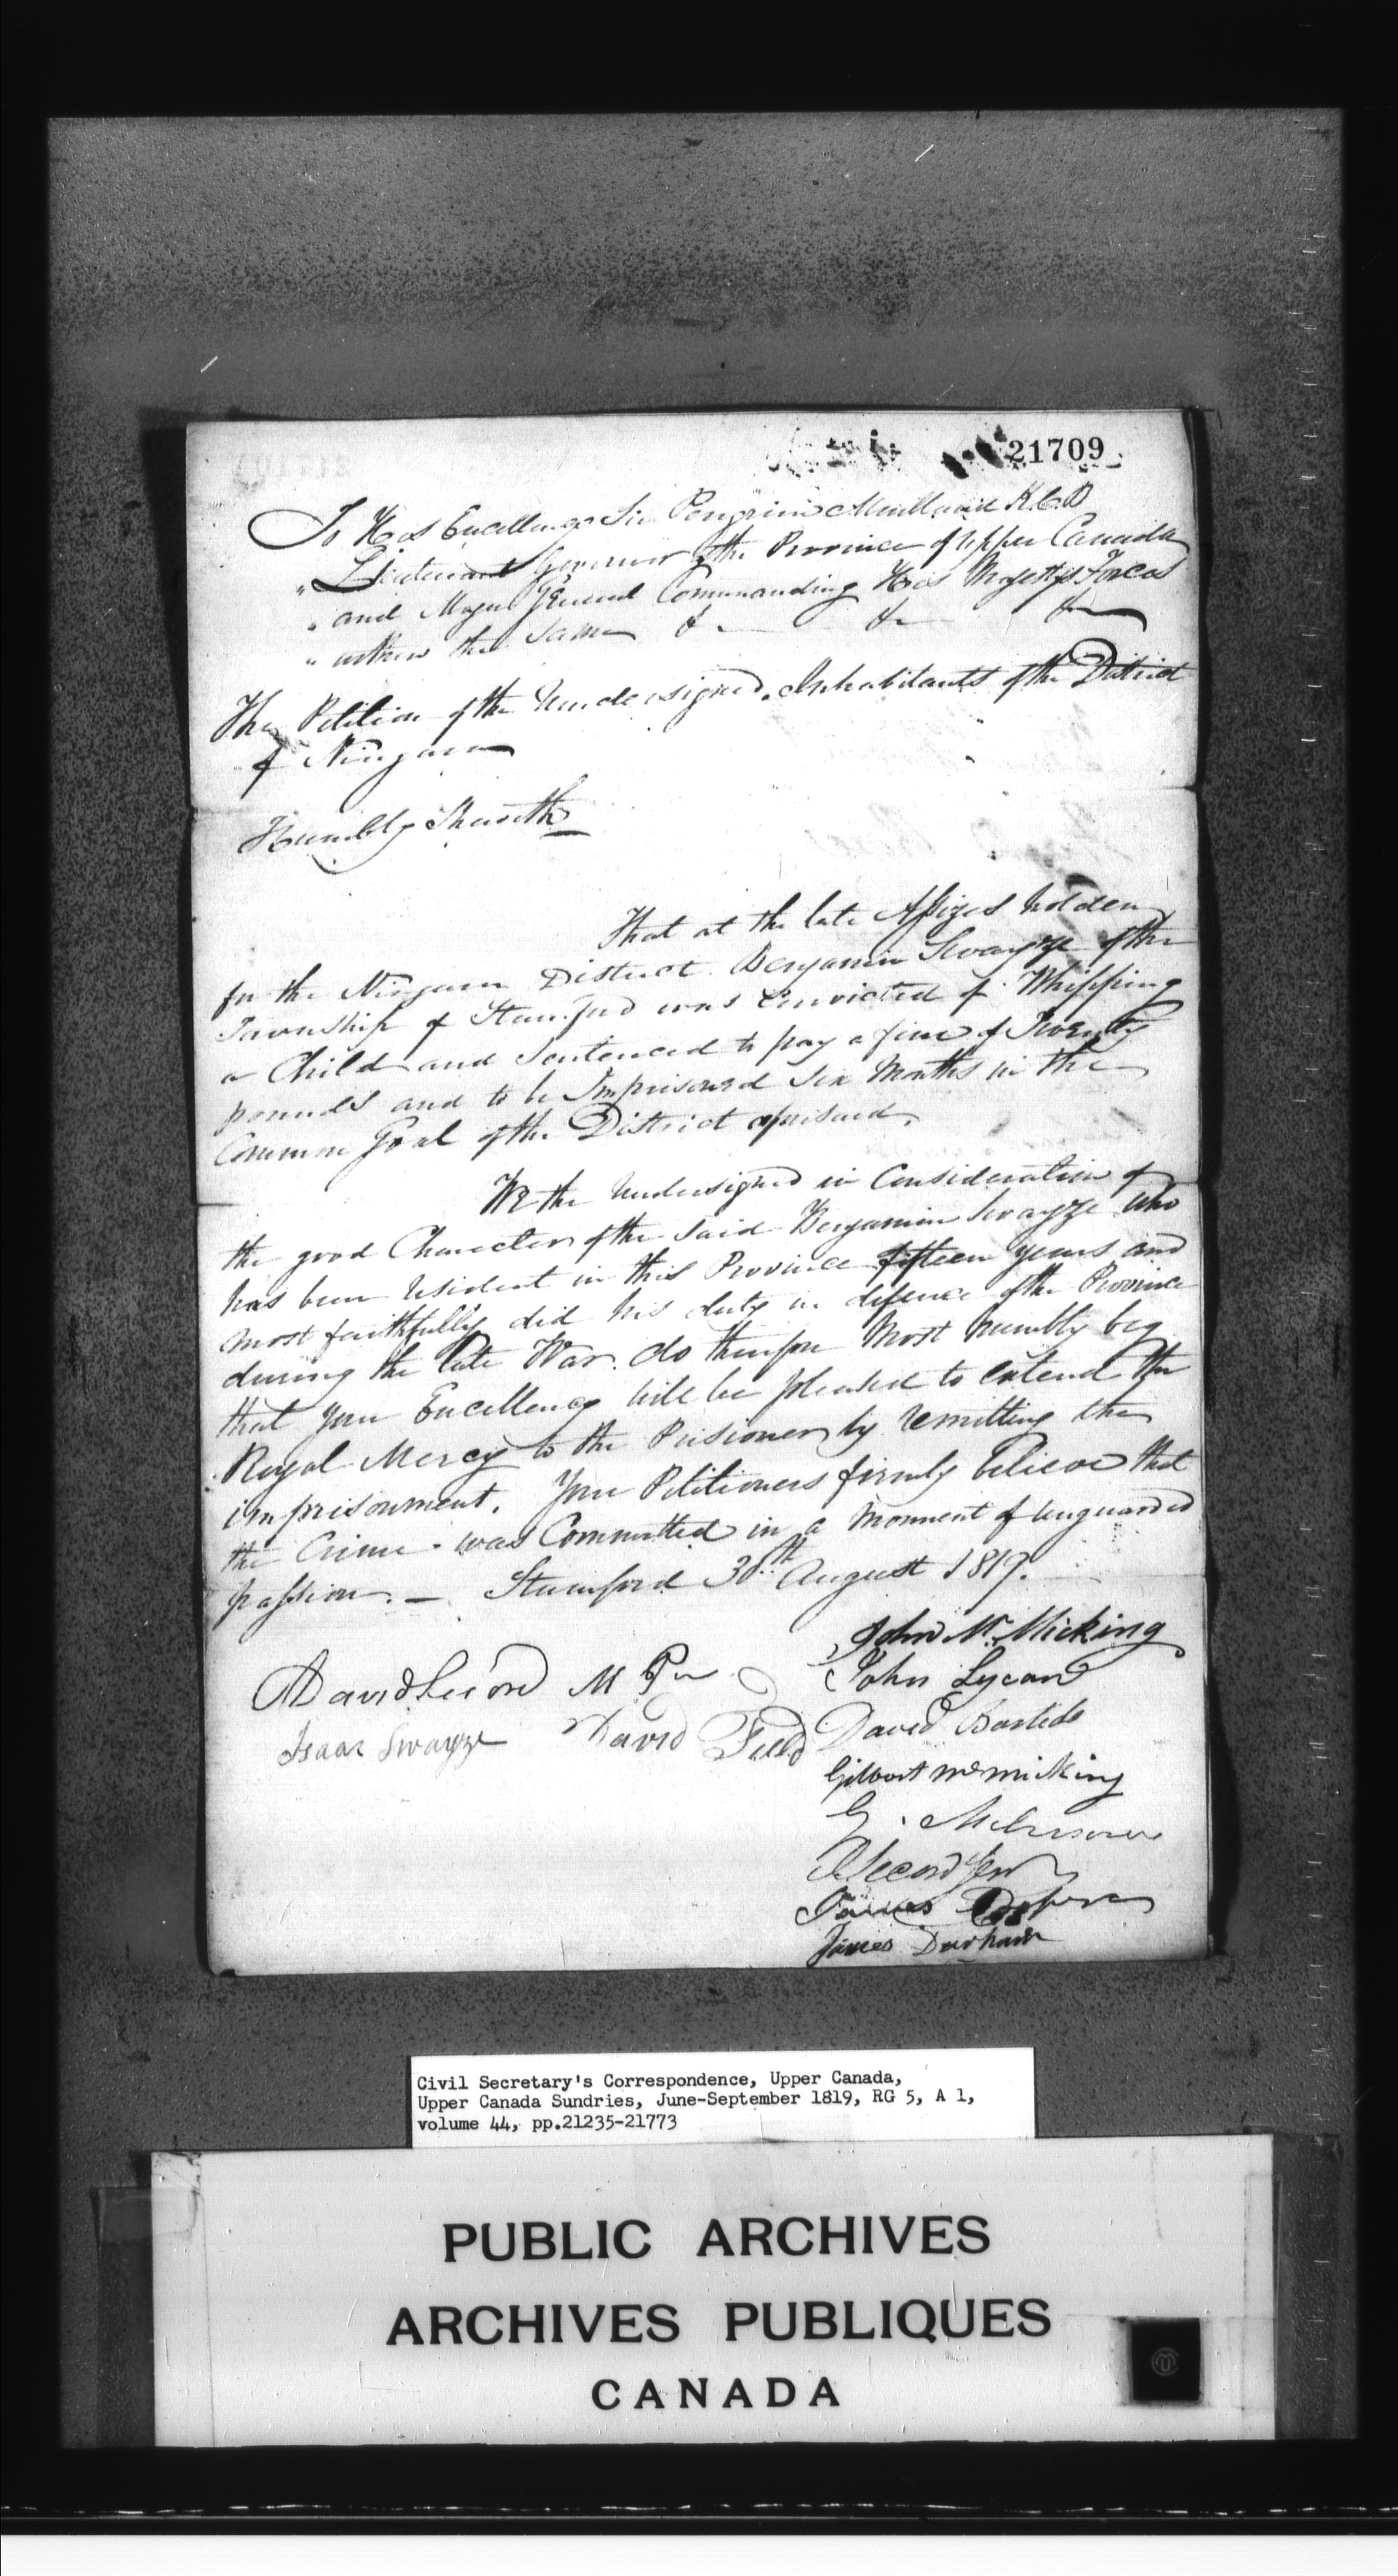 21709
To His Excellency Sir Peregrine Maitland K.C.B
" Lieutenant Governor of the Province of Upper Canada
" and Major General Commanding His Majestys Forces
" within the Same &c &c &c
The Petition of the Undersigned Inhabitants of the District
of Niagara
Humbly Sheweth
That at the late Assizes holden
for the Niagara District Benjamin Swayze of the
Township of Stamford was Convicted of Whipping
a Child and Sentenced to pay a fine of Twenty
pounds and to be Imprisoned Six Months in the
Common Goal of the District aforesaid.
WE the Undersigned in Consideration of
the good Character of the said Benjamin Swayze who
has been resident in this Province fifteen years and
most faithfully did his duty in defence of the Province
during the late War. do therefore Most humbly beg
that your Excellency will be pleased to extend the
Royal Mercy to the Prisoner by remitting the
imprisonment. Your Petitioners firmly believe that
the Crime was Committed in a Moment of unguarded
passion. — Stamford 30th August 1819.
John McMicking
David Secord M P
John Lycan
Isaac Swayze
David Field
David Bastedo
Gilbert McMicking
G.
Secord Jun
James
James Durham
Civil Secretary's Correspondence, Upper Canada,
Upper Canada Sundries, June-September 1819, RG 5, A 1,
volume 44, pp.21235-21773
PUBLIC ARCHIVES
ARCHIVES PUBLIQUES
CANADA